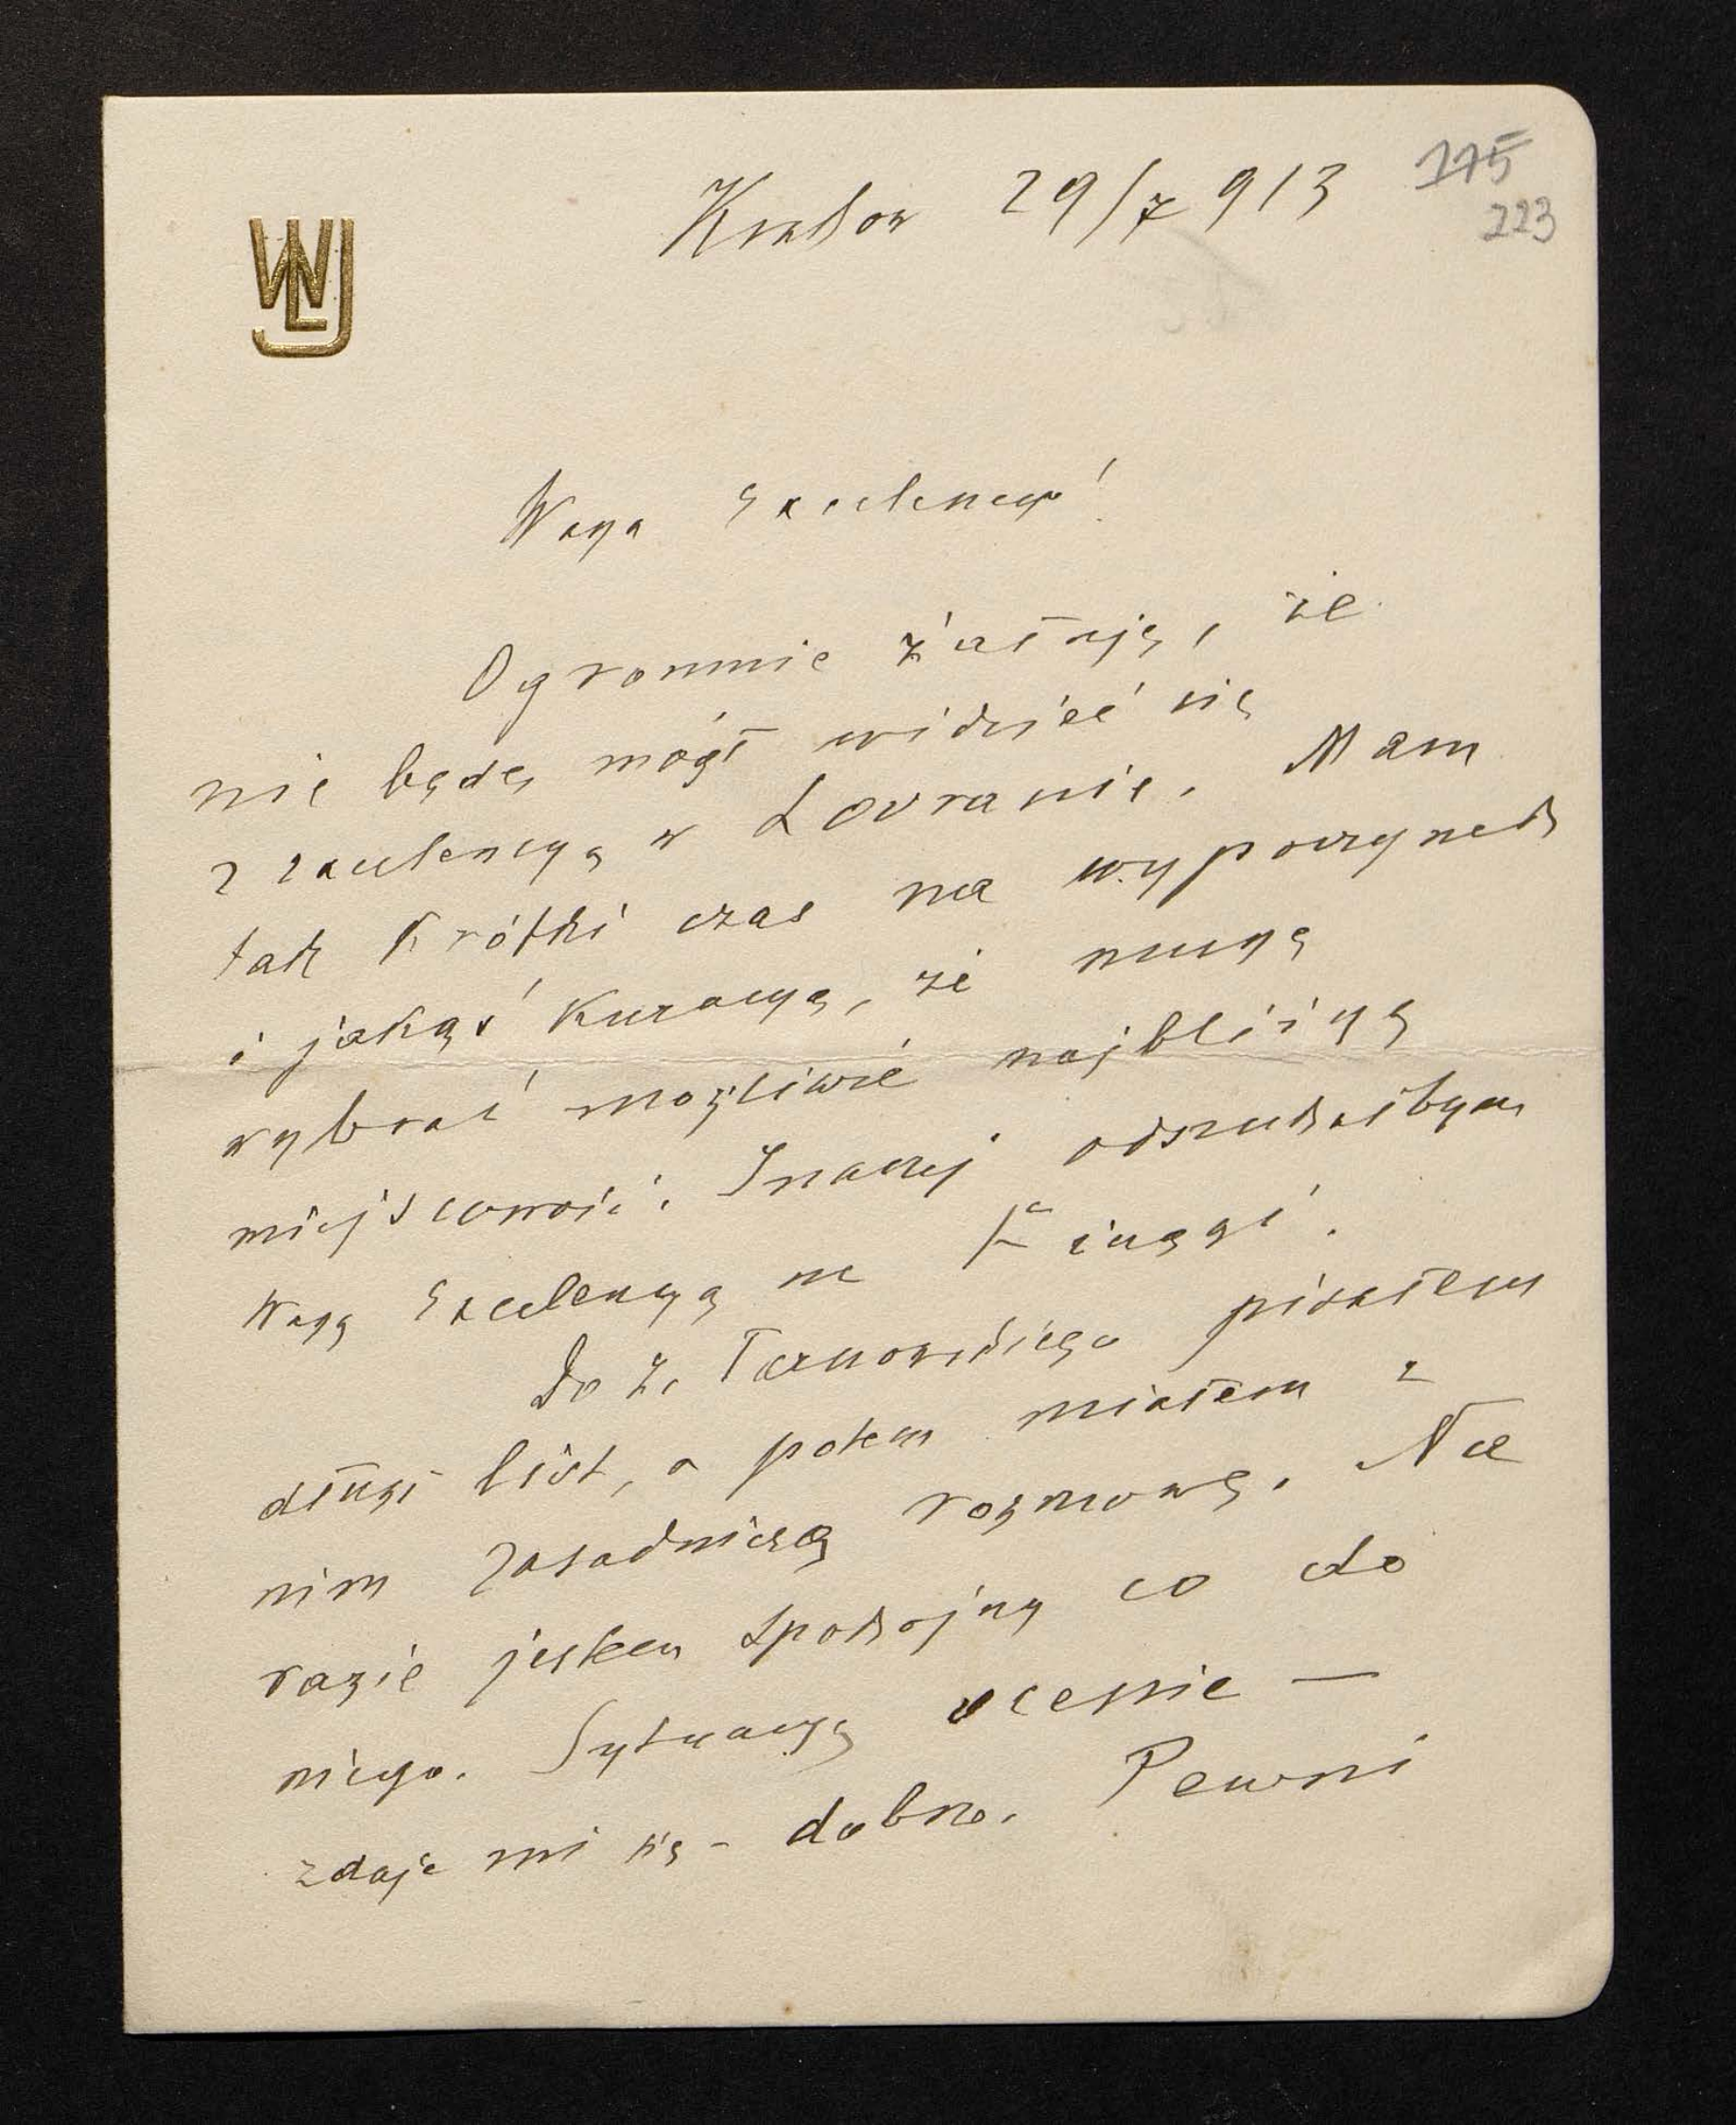 175
223
Kraków 29/7 913
WLJ
Wasza Excelencyo!
Ogromnie żałuję, że
nie będę mógł widzieć się
z Excelencyą w Lovranie. Mam
tak krótki czas na wypoczynek
i jakąś kuracyę, że muszę
wybrać możliwie najbliższą
miejscowość. Inaczej odszukałbym
Waszą Excelencyę na
Do Z. Tarnowskiego pisałem
długi list, a potem miałem z
nim zasadniczą rozmowę. Na
razie jestem spokojny co do
niego. Sytuacyę ocenie —
zdaje mi się – dobrze. Pewni